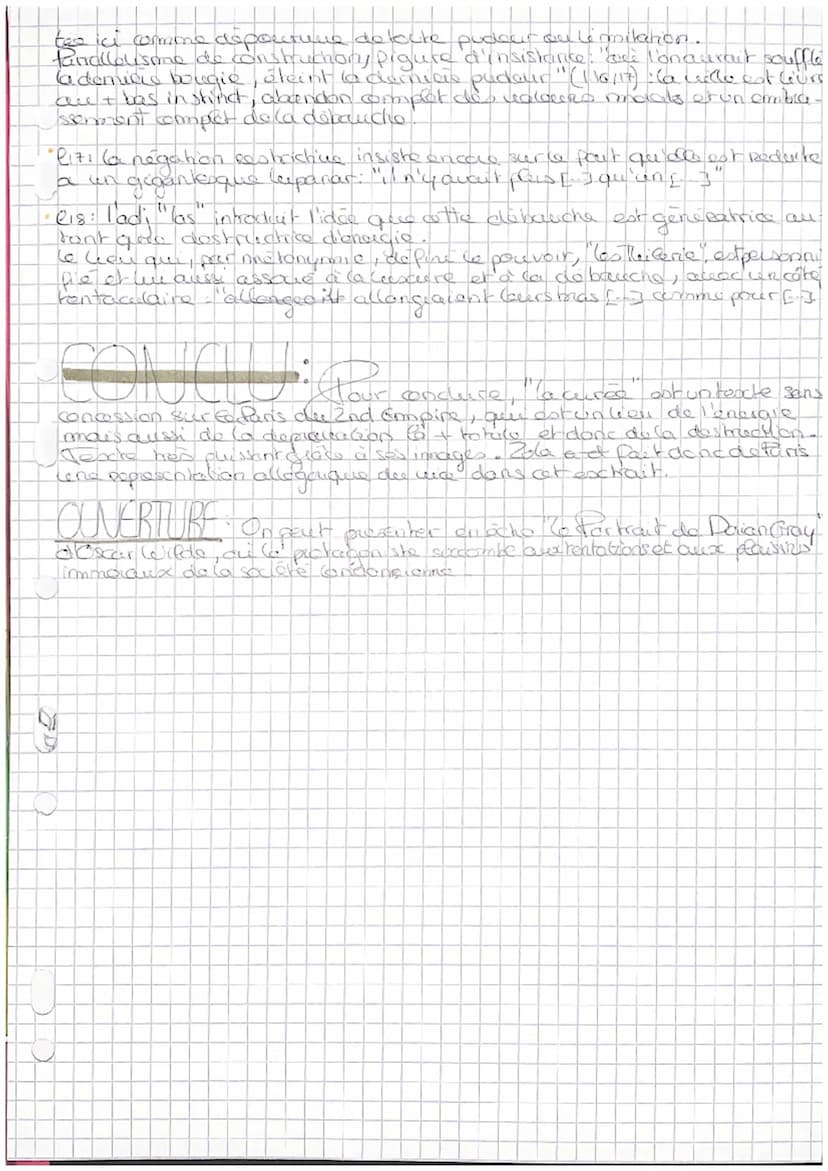 tée ici comme dépourvue de toute pudeur ou limitation.
Parallélisme de construction, figure d'insistance: "où l'on aurait soufflé
la dernière bougie, éteint la dernière pudeur" (l 16/17) : la ville est
au + bas instinct, abandon complet des valeurs morales et un embra-
ssement complet de la débauche!
• l17: la négation restrictive insiste encore sur le fait qu'elle est réduite
à un gigantesque lupanar: "il n'y avait plus [...] qu'un [...]"
• l18: l'adj "las" introduit l'idée que cette débauche est génératrice au-
tant que destructrice d'énergie.
Le lieu qui, par métonymie, définit le pouvoir, "les Tuileries", est personni
fié et lui aussi associé à la luxure et à la débauche, avec un côté
tentaculaire : allongeaient leurs bras [...] comme pour [...]
CONCLU: Pour conclure, "la curée" est un texte sans
concession sur le Paris du 2nd Empire, qui est un lieu de l'énergie
mais aussi de la dépravation la + totale et donc de la destruction.
Texte très puissant grâce à ses images. Zola fait donc de Paris
une représentation allégorique du vice dans cet extrait.
OUVERTURE: On peut présenter en écho "le Portrait de Dorian Gray"
d'Oscar Wilde, où le protagoniste succombe aux tentations et aux plaisirs
immoraux de la société londonienne